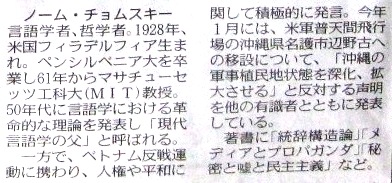 ノーム・チョムスキー
言語学者、哲学者。1928年、
米国フィラデルフィア生ま
れ。ペンシルベニア大を卒
業し61年からマサチューセ
ッツ工科大(MIT)教授。
50年代に言語学における革
命的な理論を発表し「現代
言語学の父」と呼ばれる。
一方で、ベトナム反戦運動
に携わり、人権や平和に
関して積極的に発言。今年
1月には、米軍普天間飛行
場の沖縄県名護市辺野古へ
の移設について、「沖縄の
軍事植民地状態を深化、拡
大させる」と反対する声明
を他の有識者とともに発表
している。
著書に「統辞構造論」「メ
ディアとプロパガンダ」「秘
密と嘘と民主主義」など。